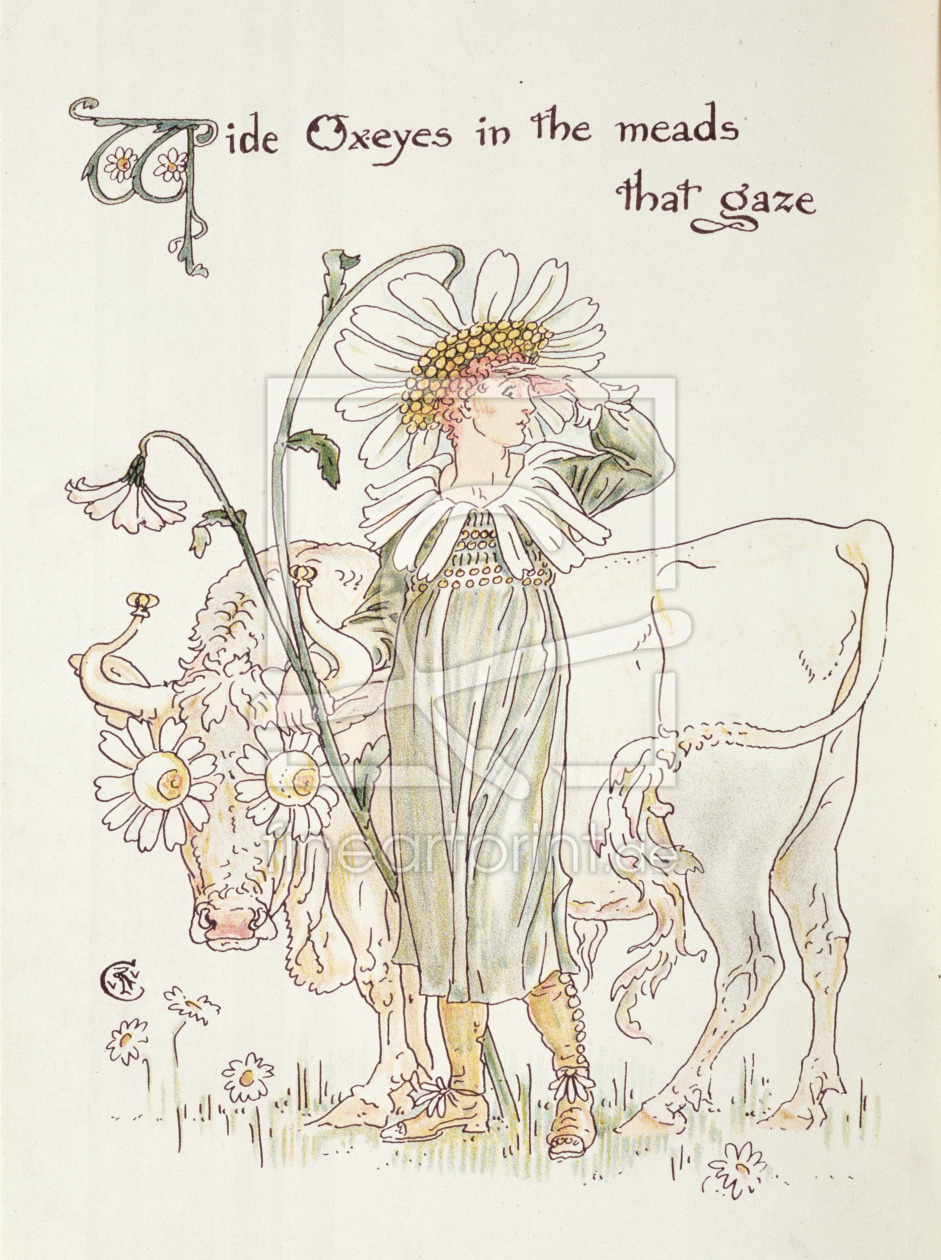 Wide Oxeyes in the meads
that gaze
fineartprint.de